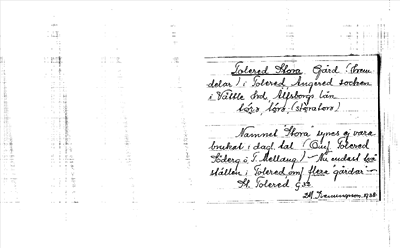 Tolered Stora. Gård (Frem
delar) i Tolered, Angered socken
i Vättle hd, Älfsborgs län
Namnet "Stora" synes ej vara
brukat i dagl. tal. (Omf Tolered
Söderg. u. T. Mellang) – Nu endast två
ställen i Tolered, omf flera "gårdar" –
St. Tolered G 32.